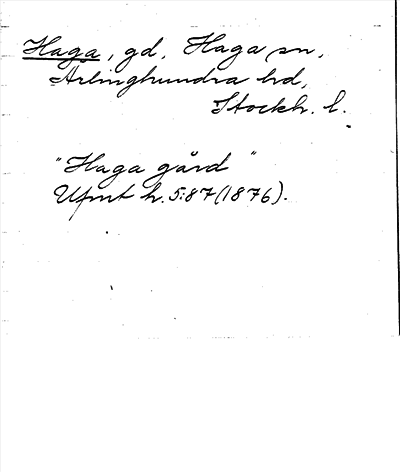 Haga, gd, Haga sn,
Ärlinghundra hd,
Stockh. l.
"Haga gård"
Ufmt h. 5:87 (1876).